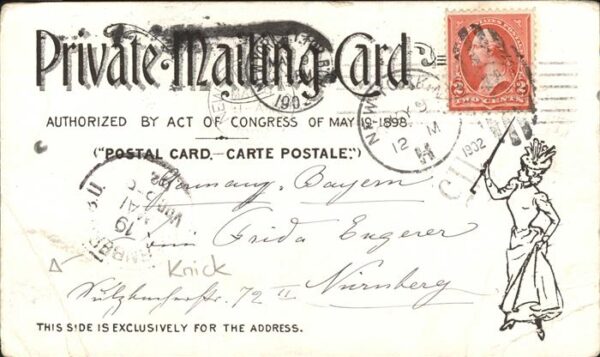 Private Mailing Card
AUTHORIZED BY ACT OF CONGRESS OF MAY 19-1898
("POSTAL CARD,—CARTE POSTALE")
NEW
12 M
1902
2 2
TWO CENTS
190
19
MAI
Germany - Bayern
Frida Engerer
Knick
Sulzbacherstr. 72 II Nürnberg
THIS SIDE IS EXCLUSIVELY FOR THE ADDRESS.